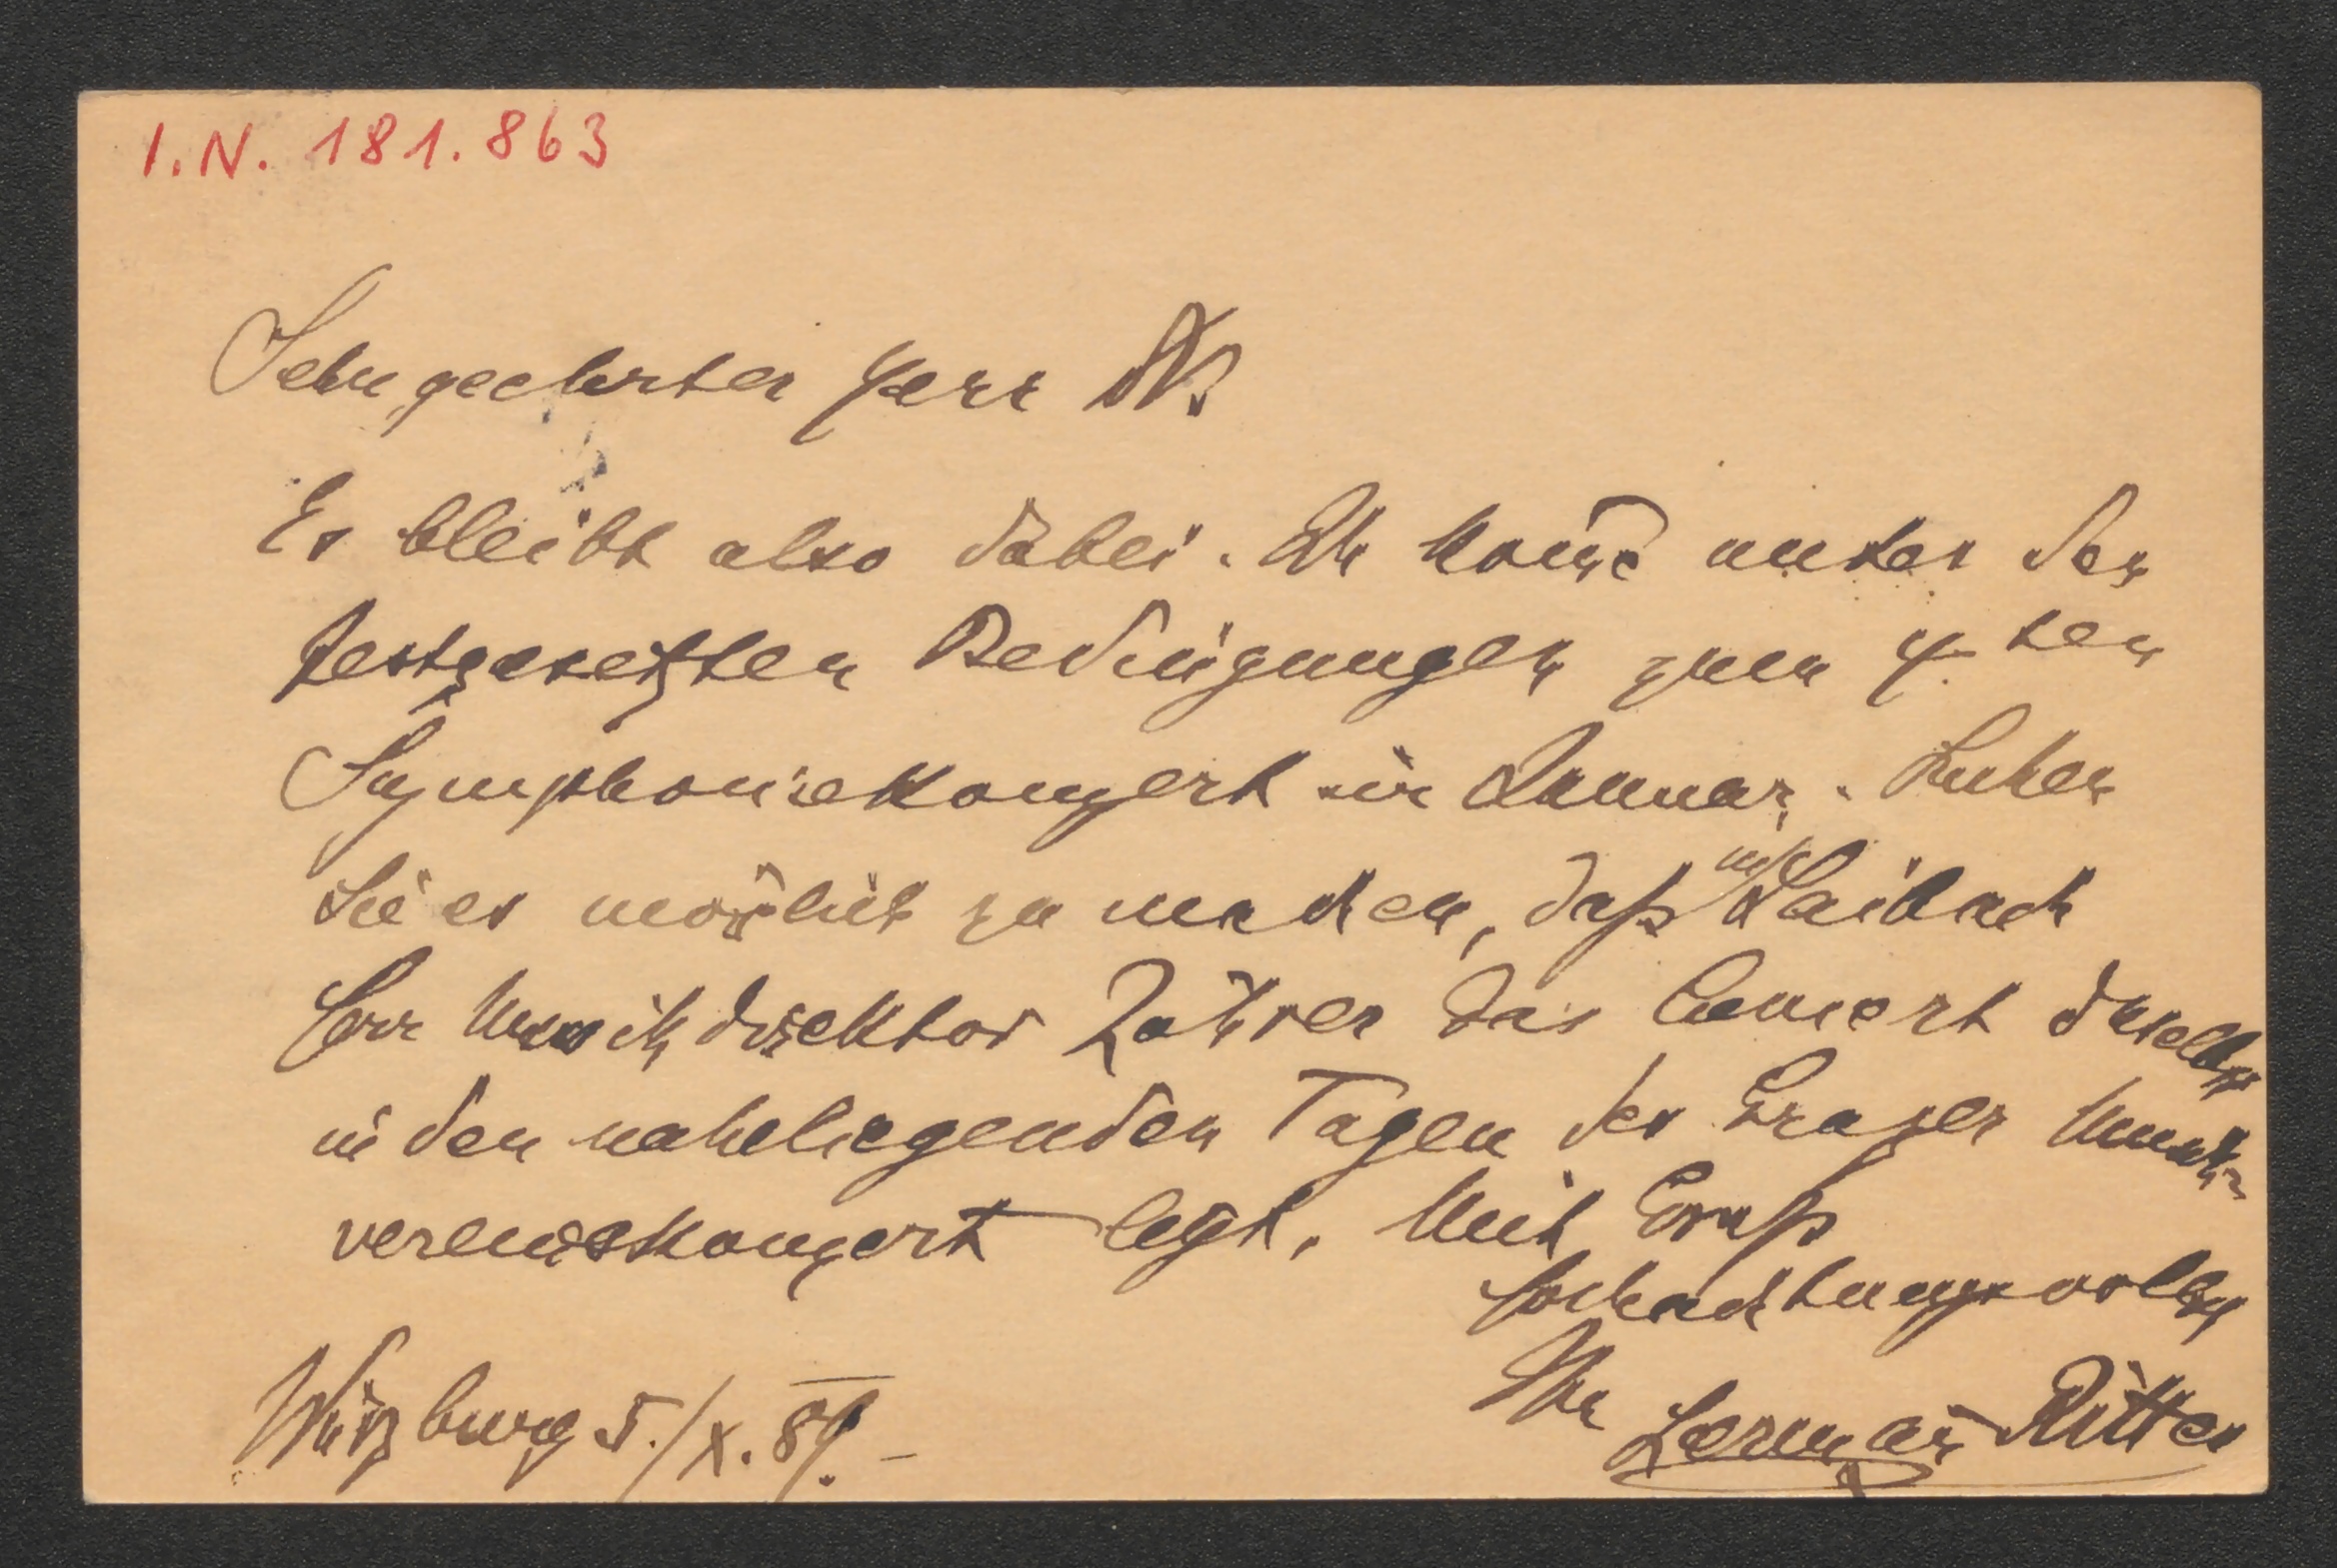 I.N. 181.863
Sehr geehrter Herr Dr.
Es bleibt also dabei. Ich kom̅e unter den
festgesetzten Bedingungen zum 4ten
Symphoniekonzert im Januar. Suchen
Sie es möglich zu machen, daß in Laibach
Herr Musikdirektor Zöhrer das Concert daselbst
in den naheliegenden Tagen des Grazer Musik-
vereinskonzert legt. Mit Gruß
hochachtungsvollst
Ihr Herman Ritter
Würzburg 5./X. 89.–